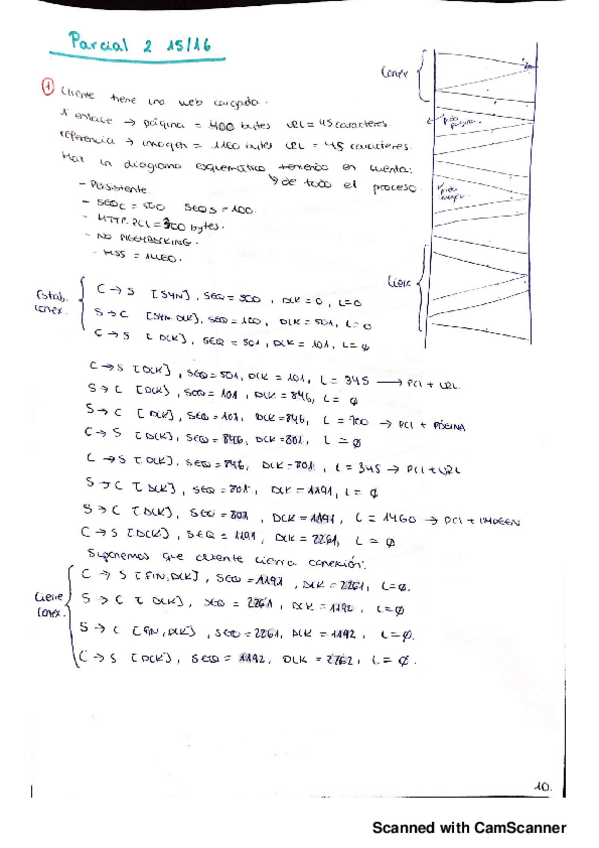 Parcial 2 15/16
① Cliente tiene una web cargada.
1 enlace → página = 400 bytes URL = 45 caracteres
referencia → imagen = 1160 bytes URL = 45 caracteres.
Haz un diagrama esquemático teniendo en cuenta:
↳ de todo el proceso.
- Persistente.
- SEQc = 500 SEQs = 100.
- HTTP-PCI = 300 bytes.
- NO PIGGYBACKING.
- MSS = 1460.
Conex
pide página
pide imagen
Cierre
Estab. conex.
C → S [SYN], SEQ = 500, ACK = 0, L = 0
S → C [SYN, ACK], SEQ = 100, ACK = 501, L = 0
C → S [ACK], SEQ = 501, ACK = 101, L = ∅
C → S [ACK], SEQ = 501, ACK = 101, L = 345 → PCI + URL.
S → C [ACK], SEQ = 101, ACK = 846, L = ∅
S → C [ACK], SEQ = 101, ACK = 846, L = 700 → PCI + PÁGINA
C → S [ACK], SEQ = 846, ACK = 801, L = ∅
C → S [ACK], SEQ = 846, ACK = 801, L = 345 → PCI + URL
S → C [ACK], SEQ = 801, ACK = 1191, L = ∅
S → C [ACK], SEQ = 801, ACK = 1191, L = 1460 → PCI + IMAGEN
C → S [ACK], SEQ = 1191, ACK = 2261, L = ∅
Suponemos que cliente cierra conexión:
Cierre conex.
C → S [FIN, ACK], SEQ = 1191, ACK = 2261, L = ∅.
S → C [ACK], SEQ = 2261, ACK = 1192, L = ∅
S → C [FIN, ACK], SEQ = 2261, ACK = 1192, L = ∅.
C → S [ACK], SEQ = 1192, ACK = 2262, L = ∅.
10.
Scanned with CamScanner